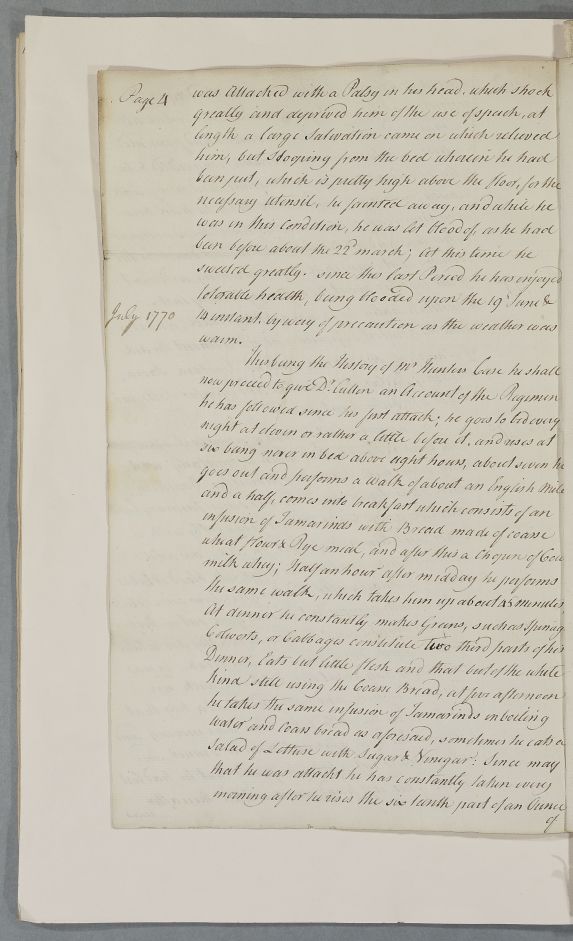 Page 4
was Attached with a Palsy in his head, which shock
greatly and deprived him of the use of speech, at
length a large Salivation came on which relieved
him, but Stooping from the bed wherein he had
been put, which is pretty high above the floor, for the
necessary Utensil, he fainted away, and while he
was in this Condition, he was let blood of, as he had
been before about the 22d march; let this time he
sweated greatly. since this last Period he has enjoyed
tolorable health, being blooded upon the 19th June &
July 1770
14 instant. by way of precaution as the weather was
warm.
This being the History of Mr Hunters Case he shall
now proceed to give Dr Cullen an Account of the Regimen
he has followed since his first attack; he goes to bed every
night at eleven or rather a little before it, and rises at
six being never in bed above eight hours, about seven he
goes out and performs a walk of about an English Mile
and a half, comes into breakfast which consists of an
infusion of Tamarinds with Bread made of coarse
wheat flour & Rye meal, and after this a Chopin of Cow
milk whey; Half an hour after midday he performs
the same walk, which takes him up about 45 minutes,
At dinner he constantly makes Greens, such as Spinag
Colworts, or Cabbages constitute two third parts of his
Dinner, Eats but little flesh and that but of the white
kind still using the Coarse Bread, at five afternoon
he takes the same infusion of Tamarinds in boiling
water and Coars bread as aforesaid, sometimes he eats a
Salad of Lettuse with Sugar & Vinegar: Since may
that he was attackt he has constantly taken every
morning after he rises the sixteenth part of an Ounce
of